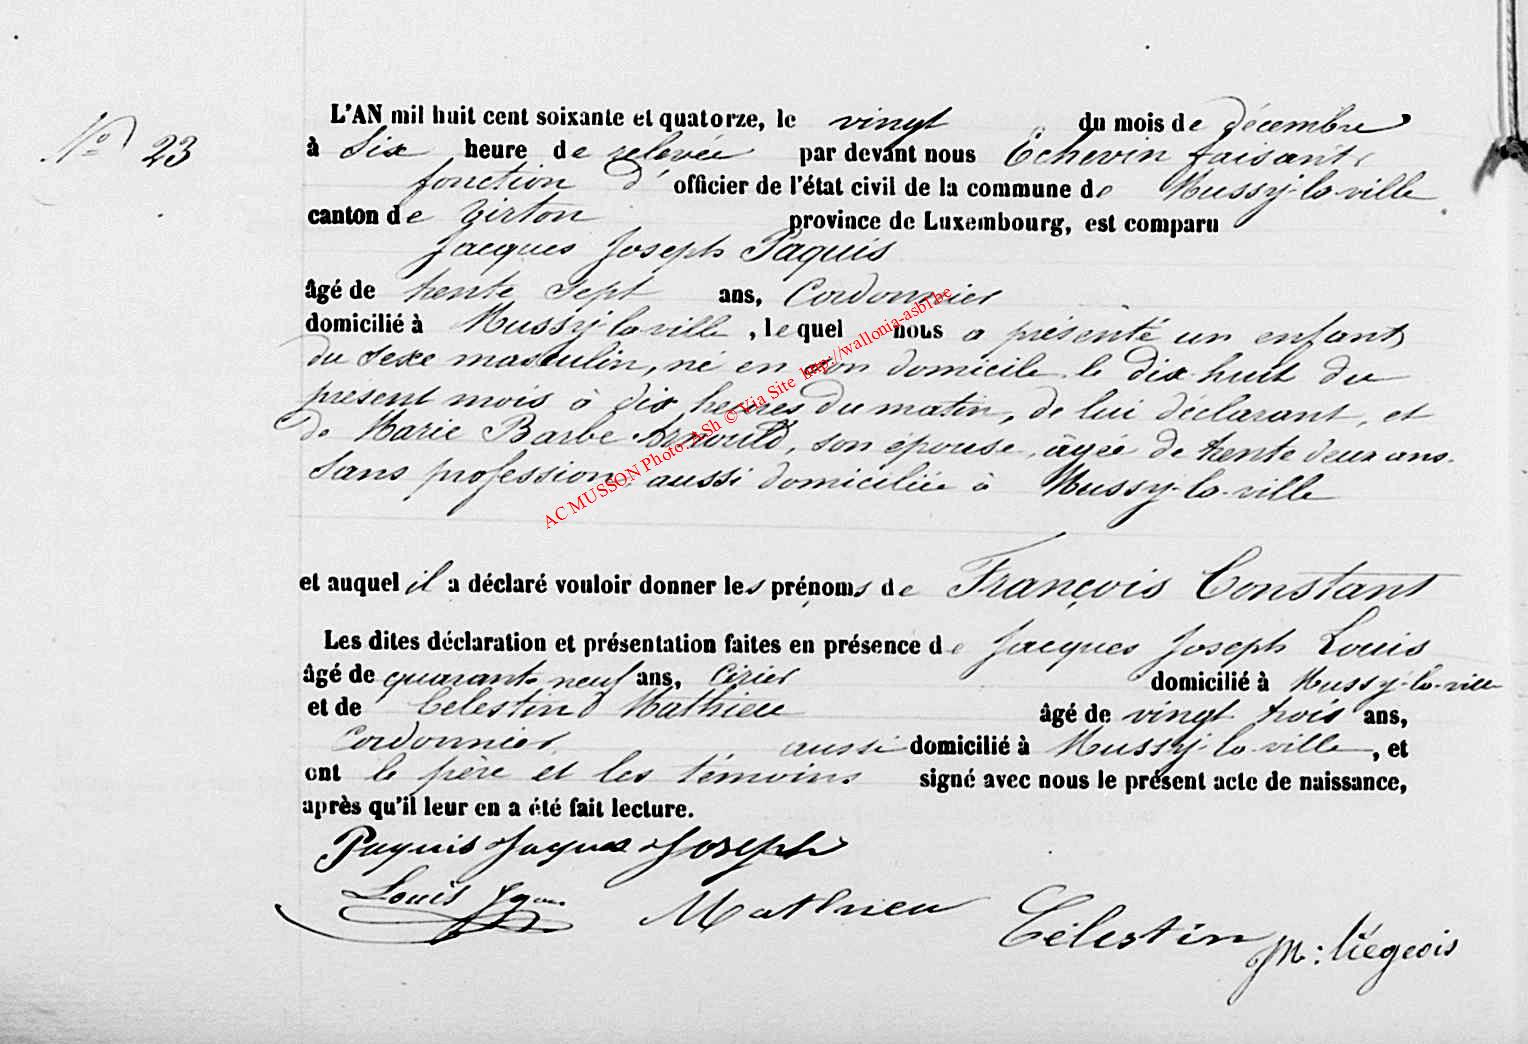 N° 23
L'AN mil huit cent soixante et quatorze, le vingt du mois de décembre
à Six heure de relevée par devant nous Echevin faisant
fonction d' officier de l'état civil de la commune de Mussy-la-ville
canton de Virton province de Luxembourg, est comparu
Jacques Joseph Paquis
âgé de trente sept ans, Cordonnier
domicilié à Mussy-la-ville, lequel nous a présenté un enfant
du sexe masculin, né en son domicile le dix-huit du
présent mois à dix heures du matin, de lui déclarant, et
de Marie Barbe Arnould, son épouse, âgée de trente deux ans.
Sans profession, aussi domiciliée à Mussy-la-ville
AC MUSSON Photo: ASh © Via Site http://wallonia-asbl.be
et auquel il a déclaré vouloir donner les prénoms de François Constant
Les dites déclaration et présentation faites en présence de Jacques Joseph Louis
âgé de quarante neuf ans, Cirier domicilié à Mussy-la-ville
et de Célestin Mathieu âgé de vingt trois ans,
Cordonnier, aussi domicilié à Mussy-la-ville, et
ont le père et les témoins signé avec nous le présent acte de naissance,
après qu'il leur en a été fait lecture.
Paquis Jaques Joseph
Louis
Mathieu Célestin
M: Liégeois